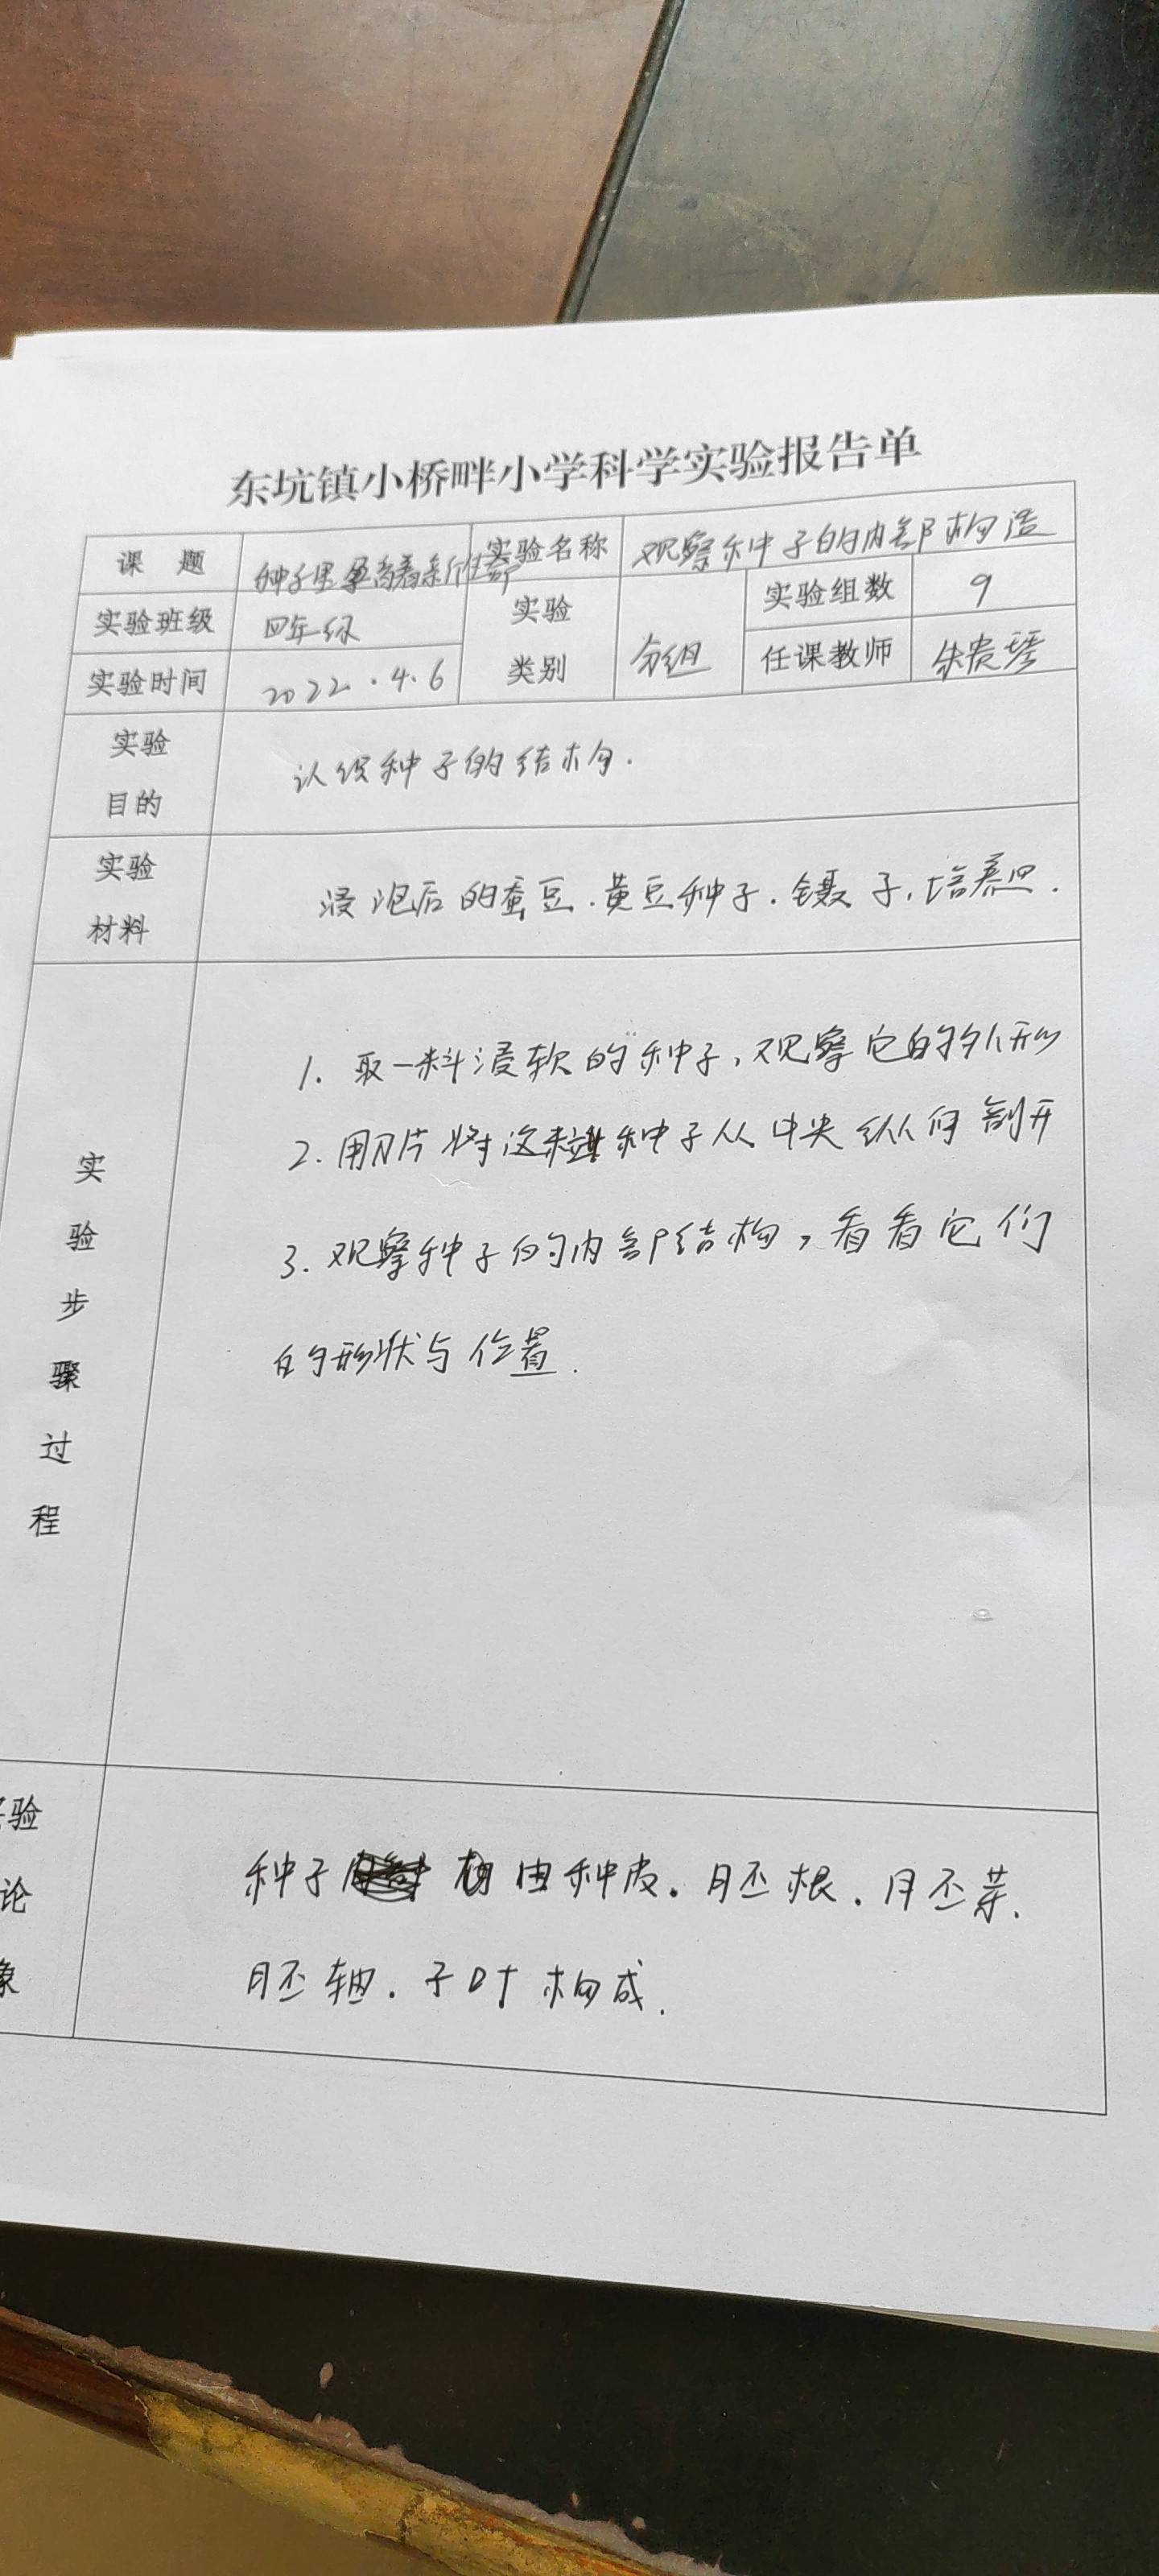 东坑镇小桥畔小学科学实验报告单
课 题 种子里孕育着新生命 实验名称 观察种子的内部构造
实验班级 四年级 实验 类别 分组 实验组数 9
实验时间 2022.4.6 任课教师 朱贵琴
实验 目的 认识种子的结构.
实验 材料 浸泡后的蚕豆.黄豆种子.镊子.培养皿.
实验步骤过程
1. 取一粒浸软的种子,观察它的外形
2. 用刀片将这粒种子从中央纵向剖开
3. 观察种子的内部结构,看看它们
的形状与位置.
验
论
象
种子 由种皮.胚根.胚芽.
胚轴.子叶构成.